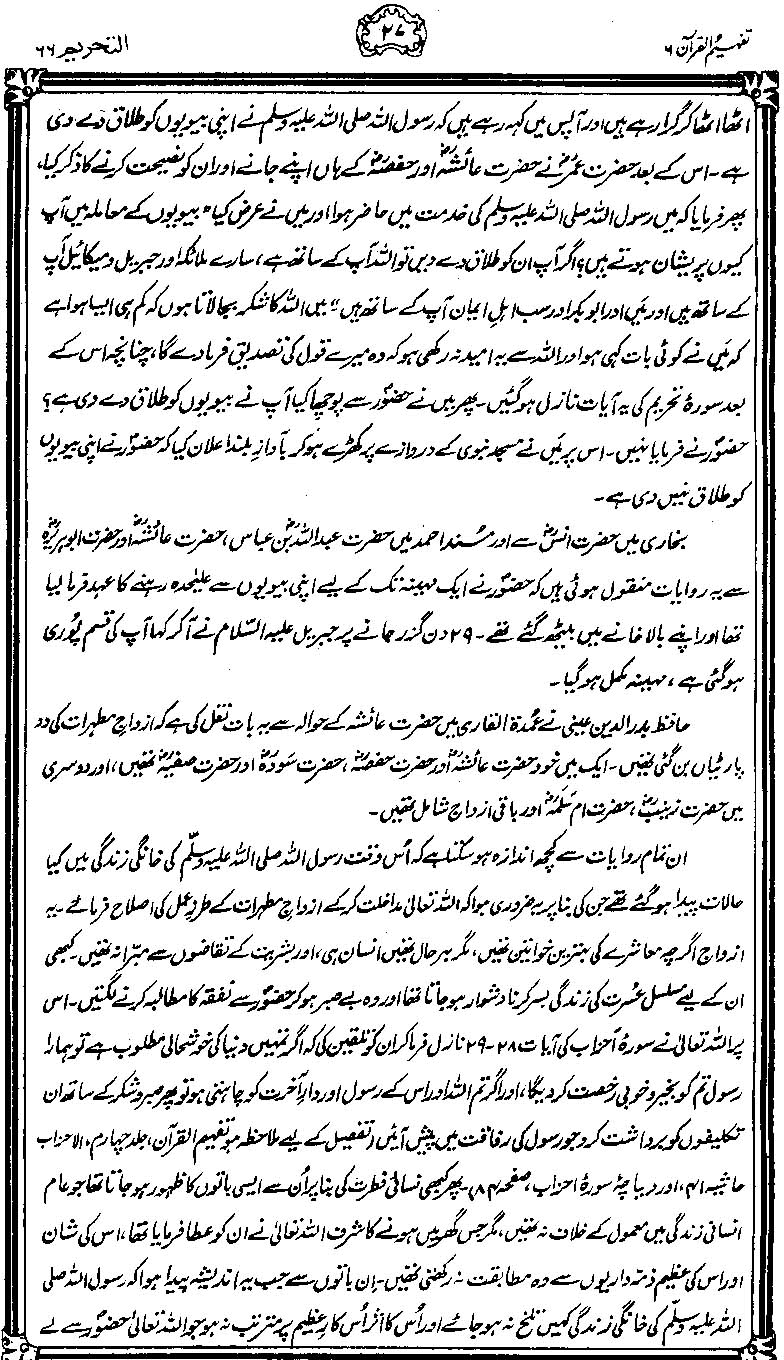 تفہیم القرآن ۶
۲۷
التحریم ۶۶
اٹھا اٹھا کر گرا رہے ہیں اور آپس میں کہہ رہے ہیں کہ رسول اللہ صلی اللہ علیہ وسلم نے اپنی بیویوں کو طلاق دے دی
ہے۔ اس کے بعد حضرت عمرؓ نے حضرت عائشہؓ اور حفصہؓ کے ہاں اپنے جانے اور ان کو نصیحت کرنے کا ذکر کیا،
پھر فرمایا کہ میں رسول اللہ صلی اللہ علیہ وسلم کی خدمت میں حاضر ہوا اور میں نے عرض کیا "بیویوں کے معاملہ میں آپ
کیوں پریشان ہوتے ہیں؟ اگر آپ ان کو طلاق دے دیں تو اللہ آپ کے ساتھ ہے، سارے ملائکہ اور جبریل و میکائیل آپ
کے ساتھ ہیں اور میں اور ابوبکر اور سب اہلِ ایمان آپ کے ساتھ ہیں" میں اللہ کا شکر بجا لاتا ہوں کہ کم ہی ایسا ہوا ہے
کہ میں نے کوئی بات کہی ہو اور اللہ سے یہ امید نہ رکھی ہو کہ وہ میرے قول کی تصدیق فرما دے گا، چنانچہ اس کے
بعد سورۂ تحریم کی یہ آیات نازل ہو گئیں۔ پھر میں نے حضورؐ سے پوچھا کیا آپ نے بیویوں کو طلاق دے دی ہے؟
حضورؐ نے فرمایا نہیں۔ اس پر میں نے مسجد نبوی کے دروازے پر کھڑے ہو کر بآوازِ بلند اعلان کیا کہ حضورؐ نے اپنی بیویوں
کو طلاق نہیں دی ہے۔
بخاری میں حضرت انسؓ سے اور مُسند احمد میں حضرت عبداللہؓ بن عباس، حضرت عائشہؓ اور حضرت ابوہریرہؓ
سے یہ روایات منقول ہوئی ہیں کہ حضورؐ نے ایک مہینہ تک کے لیے اپنی بیویوں سے علیٰحدہ رہنے کا عہد فرما لیا
تھا اور اپنے بالاخانے میں بیٹھ گئے تھے۔ ۲۹ دن گزر جانے پر جبریل علیہ السّلام نے آکر کہا آپ کی قسم پُوری
ہو گئی ہے، مہینہ مکمل ہو گیا۔
حافظ بدر الدین عینی نے عُمدۃ القاری میں حضرت عائشہ کے حوالہ سے یہ بات نقل کی ہے کہ ازواجِ مطہرات کی دو
پارٹیاں بن گئی تھیں۔ ایک میں خود حضرت عائشہؓ اور حضرت حفصہؓ، حضرت سَودہؓ اور حضرت صفیہؓ تھیں، اور دوسری
میں حضرت زینبؓ، حضرت ام سَلَمہؓ اور باقی ازواج شامل تھیں۔
ان تمام روایات سے کچھ اندازہ ہو سکتا ہے کہ اُس وقت رسول اللہ صلی اللہ علیہ وسلّم کی خانگی زندگی میں کیا
حالات پیدا ہو گئے تھے جن کی بنا پر یہ ضروری ہوا کہ اللہ تعالیٰ مداخلت کر کے ازواجِ مطہرات کے طرزِ عمل کی اصلاح فرمائے۔ یہ
ازواج اگرچہ معاشرے کی بہترین خواتین تھیں، مگر بہرحال تھیں انسان ہی، اور بشریت کے تقاضوں سے مبرّا نہ تھیں۔ کبھی
ان کے لیے مسلسل عسرت کی زندگی بسر کرنا دشوار ہو جاتا تھا اور وہ بے صبر ہو کر حضورؐ سے نفقہ کا مطالبہ کرنے لگتیں۔ اس
پر اللہ تعالیٰ نے سورۂ احزاب کی آیات ۲۸-۲۹ نازل فرما کر ان کو تلقین کی کہ اگر تمہیں دنیا کی خوشحالی مطلوب ہے تو ہمارا
رسول تم کو بخیر و خوبی رخصت کر دیگا، اور اگر تم اللہ اور اس کے رسول اور دارِ آخرت کو چاہتی ہو تو پھر صبر و شکر کے ساتھ ان
تکلیفوں کو برداشت کرو جو رسول کی رفاقت میں پیش آئیں (تفصیل کے لیے ملاحظہ ہو تفہیم القرآن، جلد چہارم، الاحزاب
حاشیہ ۴۱، اور دیباچۂ سورۂ احزاب، صفحہ ۸۴)۔ پھر کبھی نسائی فطرت کی بنا پر اُن سے ایسی باتوں کا ظہور ہو جاتا تھا جو عام
انسانی زندگی میں معمول کے خلاف نہ تھیں، مگر جس گھر میں ہونے کا شرف اللہ تعالیٰ نے ان کو عطا فرمایا تھا، اس کی شان
اور اس کی عظیم ذمّہ داریوں سے وہ مطابقت نہ رکھتی تھیں۔ اِن باتوں سے جب یہ اندیشہ پیدا ہوا کہ رسول اللہ صلی
اللہ علیہ وسلّم کی خانگی زندگی کہیں تلخ نہ ہو جائے اور اُس کا اثر اُس کارِ عظیم پر مترتب نہ ہو جو اللہ تعالیٰ حضورؐ سے لے